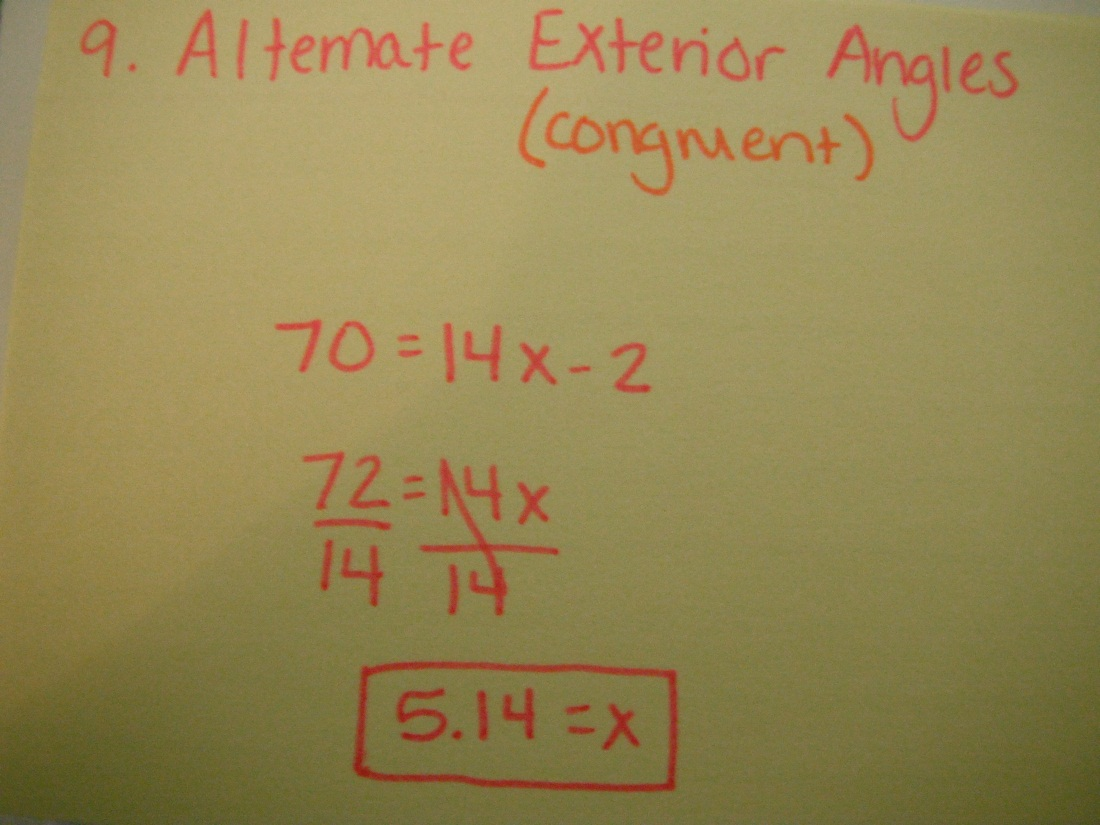 9. Alternate Exterior Angles
(congruent)
70 = 14x - 2
72 = 14x
14 14
5.14 = x